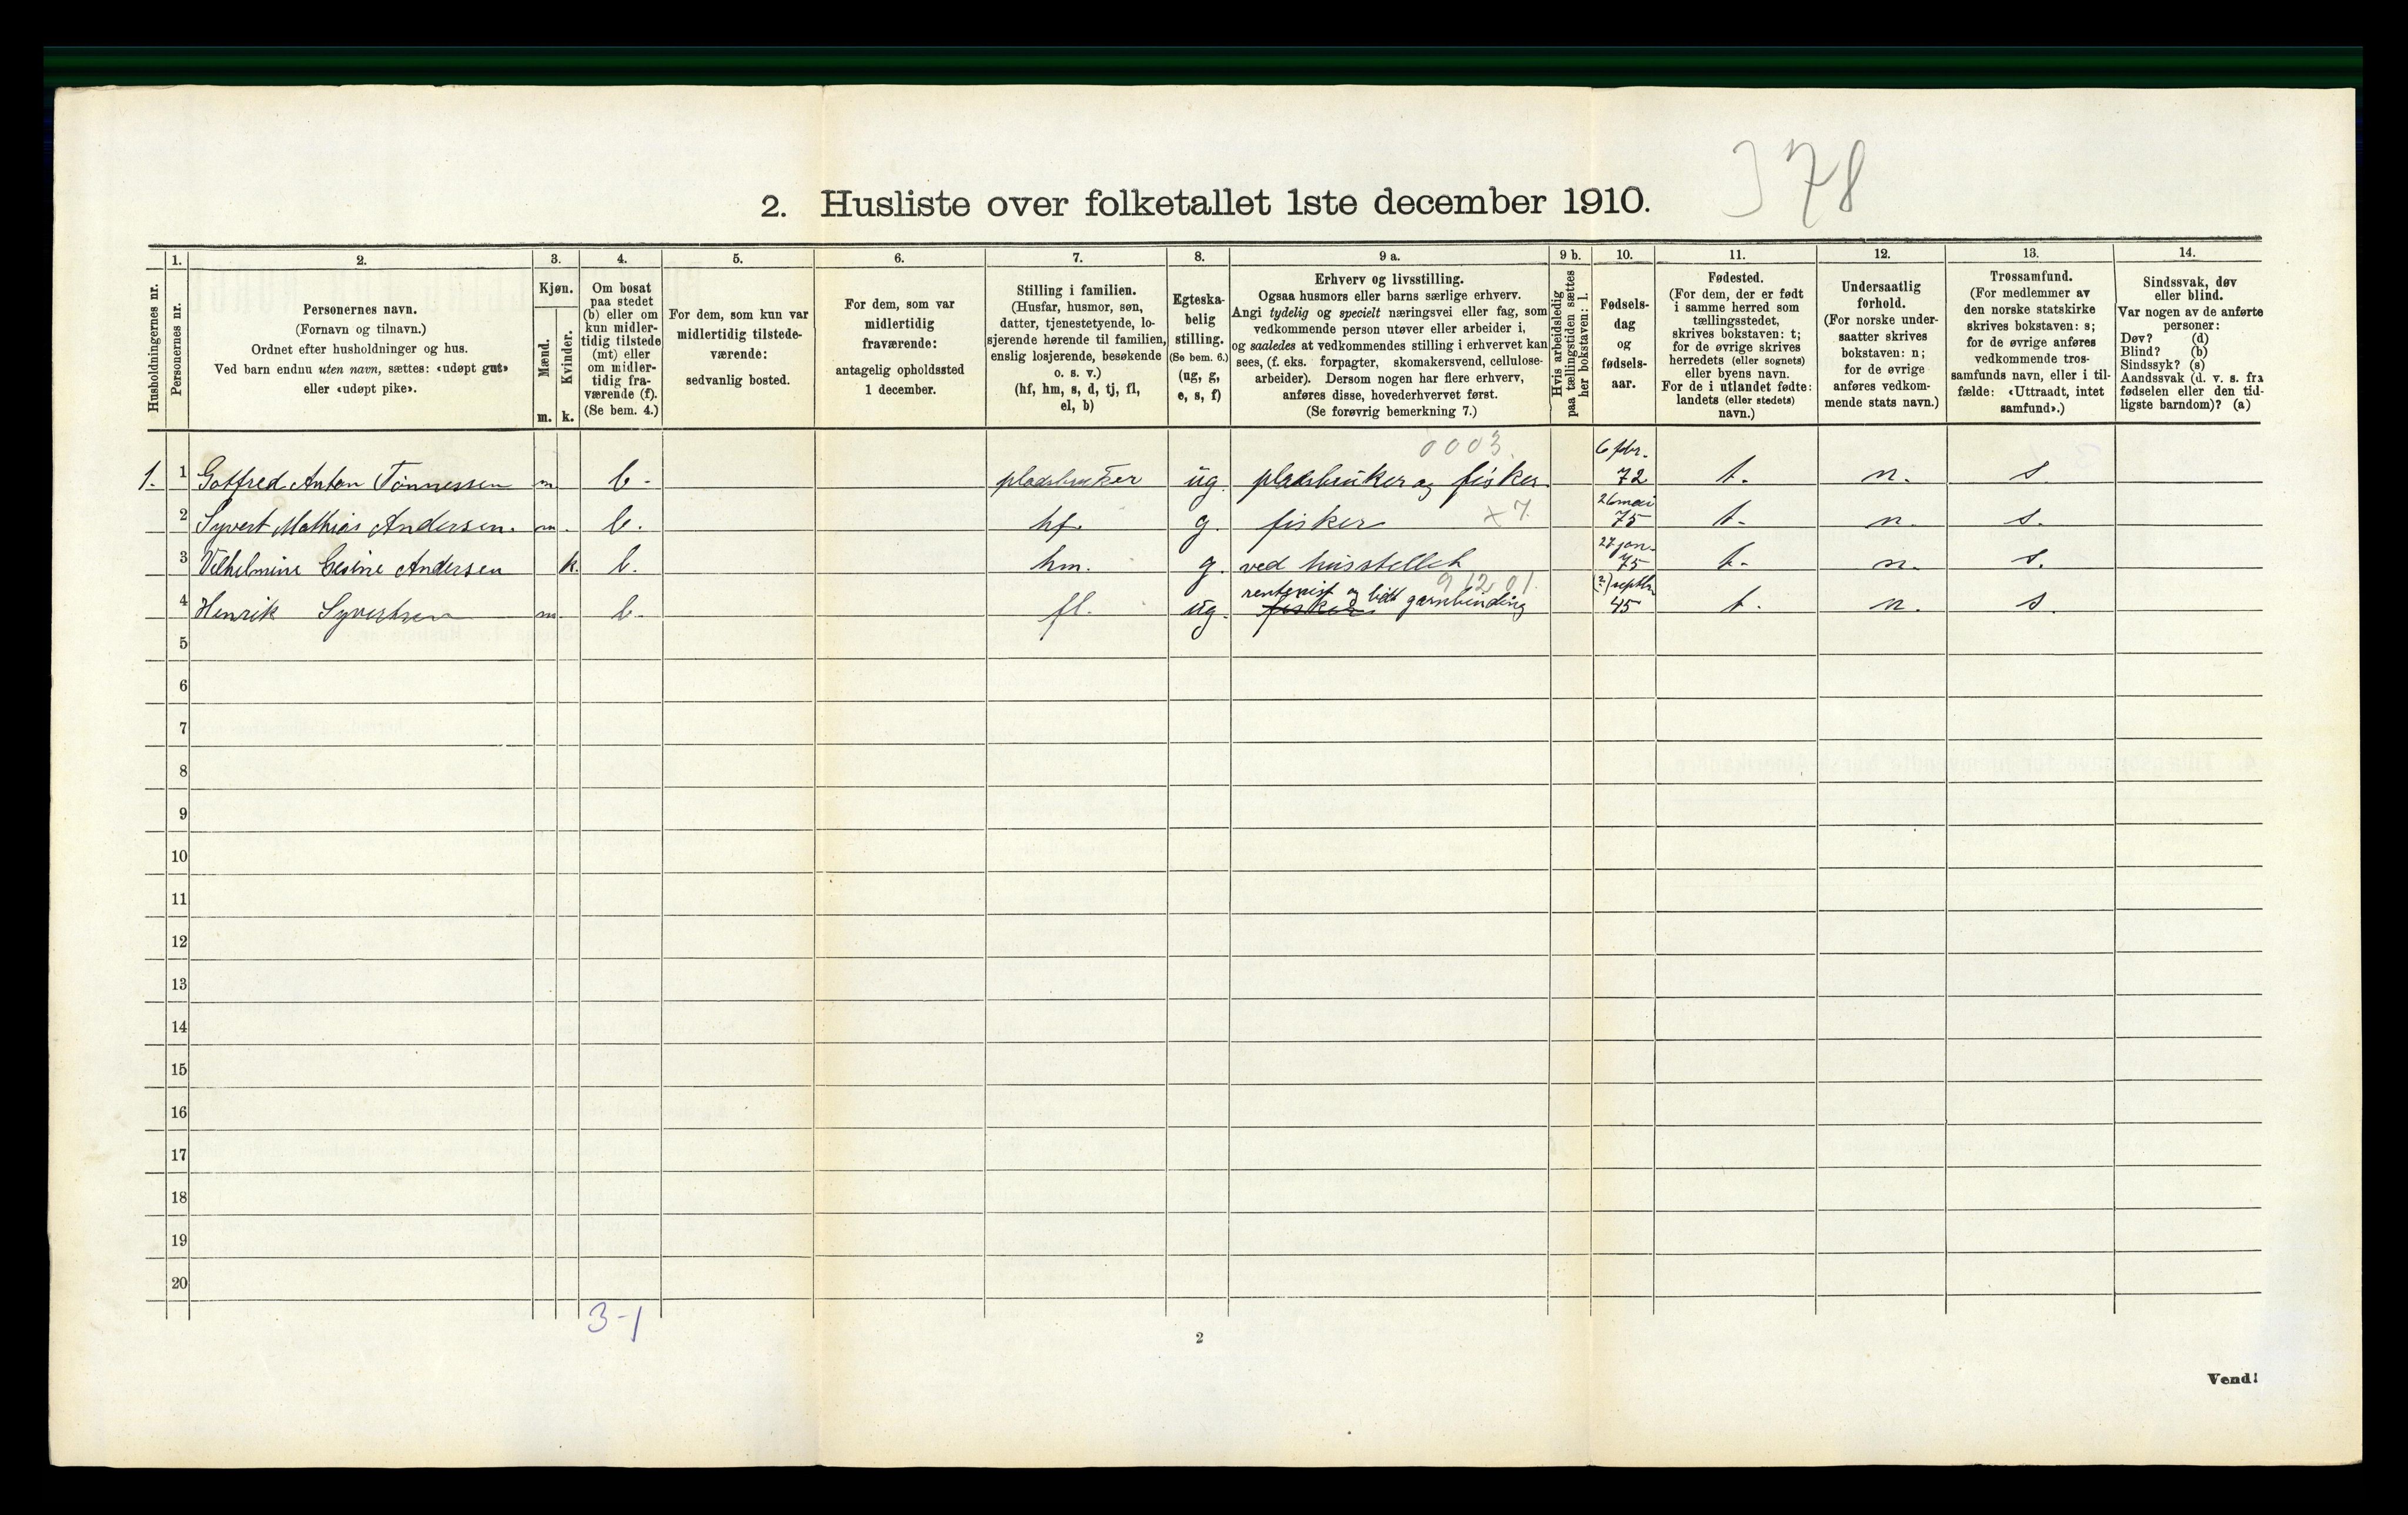 378
2. Husliste over folketallet 1ste december 1910.
Husholdningernes nr.
1.
Personernes nr.
2.
Personernes navn.
(Fornavn og tilnavn.)
Ordnet efter husholdninger og hus.
Ved barn endnu uten navn, sættes: «udøpt gut»
eller «udøpt pike».
3.
Kjøn.
Mænd.
Kvinder.
m. k.
4.
Om bosat
paa stedet
(b) eller om
kun midler-
tidig tilstede
(mt) eller
om midler-
tidig fra-
værende (f).
(Se bem. 4.)
5.
For dem, som kun var
midlertidig tilstede-
værende:
sedvanlig bosted.
6.
For dem, som var
midlertidig
fraværende:
antagelig opholdssted
1 december.
7.
Stilling i familien.
(Husfar, husmor, søn,
datter, tjenestetyende, lo-
sjerende hørende til familien,
enslig losjerende, besøkende
o. s. v.)
(hf, hm, s, d, tj, fl,
el, b)
8.
Egteska-
belig
stilling.
(Se bem. 6.)
(ug, g,
e, s, f)
9 a.
Erhverv og livsstilling.
Ogsaa husmors eller barns særlige erhverv.
Angi tydelig og specielt næringsvei eller fag, som
vedkommende person utøver eller arbeider i,
og saaledes at vedkommendes stilling i erhvervet kan
sees, (f. eks. forpagter, skomakersvend, cellulose-
arbeider). Dersom nogen har flere erhverv,
anføres disse, hovederhvervet først.
(Se forøvrig bemerkning 7.)
9 b.
Hvis arbeidsledig
paa tællingstiden sættes
her bokstaven: l.
10.
Fødsels-
dag
og
fødsels-
aar.
11.
Fødested.
(For dem, der er født
i samme herred som
tællingsstedet,
skrives bokstaven: t;
for de øvrige skrives
herredets (eller sognets)
eller byens navn.
For de i utlandet fødte:
landets (eller stedets)
navn.)
12.
Undersaatlig
forhold.
(For norske under-
saatter skrives
bokstaven: n;
for de øvrige
anføres vedkom-
mende stats navn.)
13.
Trossamfund.
(For medlemmer av
den norske statskirke
skrives bokstaven: s;
for de øvrige anføres
vedkommende tros-
samfunds navn, eller i til-
fælde: «Uttraadt, intet
samfund».)
14.
Sindssvak, døv
eller blind.
Var nogen av de anførte
personer:
Døv? (d)
Blind? (b)
Sindssyk? (s)
Aandssvak (d. v. s. fra
fødselen eller den tid-
ligste barndom)? (a)
0003. 6 fbr.
1. 1 Gotfred Anton Tønnessen m b. pladsbruker ug. pladsbruker og fisker 72 t. n. s.
x 7. 26 mai
2 Syvert Mathias Andersen. m. b. hf. g. fisker 75 t. n. s.
27 jan.
3 Vilhelmine Gesine Andersen k. b. hm. g. ved husstellet 75 t. n. s.
91201. (?) septbr
rentenist og lidt garnbinding
4 Henrik Syvertsen m. b. fl. ug. fisker. 45 t. n. s.
5
6
7
8
9
10
11
12
13
14
15
16
17
18
19
20
3-1
2
Vend!